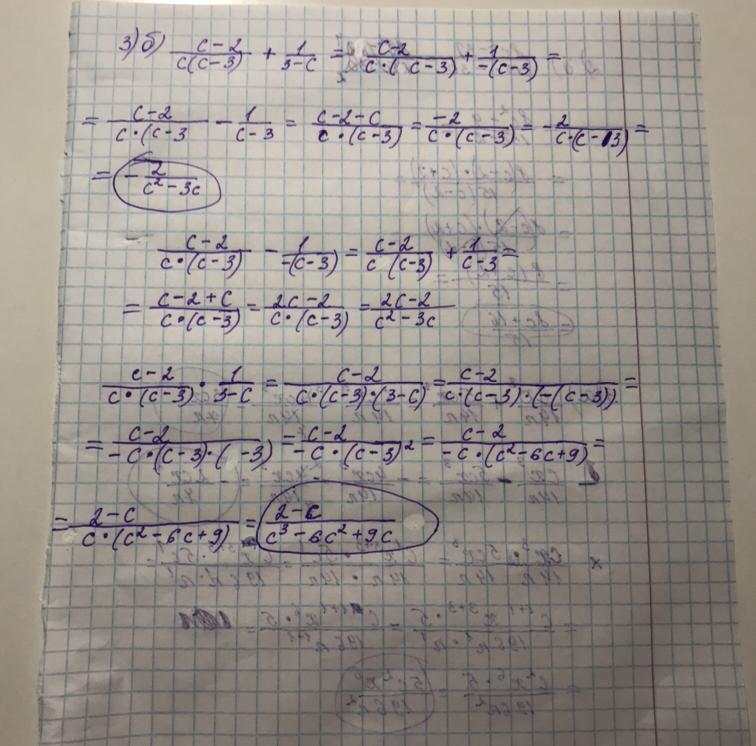 3) б) \frac{c-2}{c(c-3)} + \frac{1}{3-c} = \frac{c-2}{c·(c-3)} + \frac{1}{-(c-3)} =
= \frac{c-2}{c·(c-3} - \frac{1}{c-3} = \frac{c-2-c}{c·(c-3)} = \frac{-2}{c·(c-3)} = -\frac{2}{c·(c-3)} =
= -\frac{2}{c²-3c}
\frac{c-2}{c·(c-3)} - \frac{1}{-(c-3)} = \frac{c-2}{c (c-3)} + \frac{1}{c-3} =
= \frac{c-2+c}{c·(c-3)} = \frac{2c-2}{c·(c-3)} = \frac{2c-2}{c²-3c}
\frac{c-2}{c·(c-3)} · \frac{1}{3-c} = \frac{c-2}{c·(c-3)·(3-c)} = \frac{c-2}{c·(c-3)·(-(c-3))} =
= \frac{c-2}{-c·(c-3)·( -3)} = \frac{c-2}{-c·(c-3)²} = \frac{c-2}{-c·(c²-6c+9)} =
= \frac{2-c}{c·(c²-6c+9)} = \frac{2-c}{c³-6c²+9c}